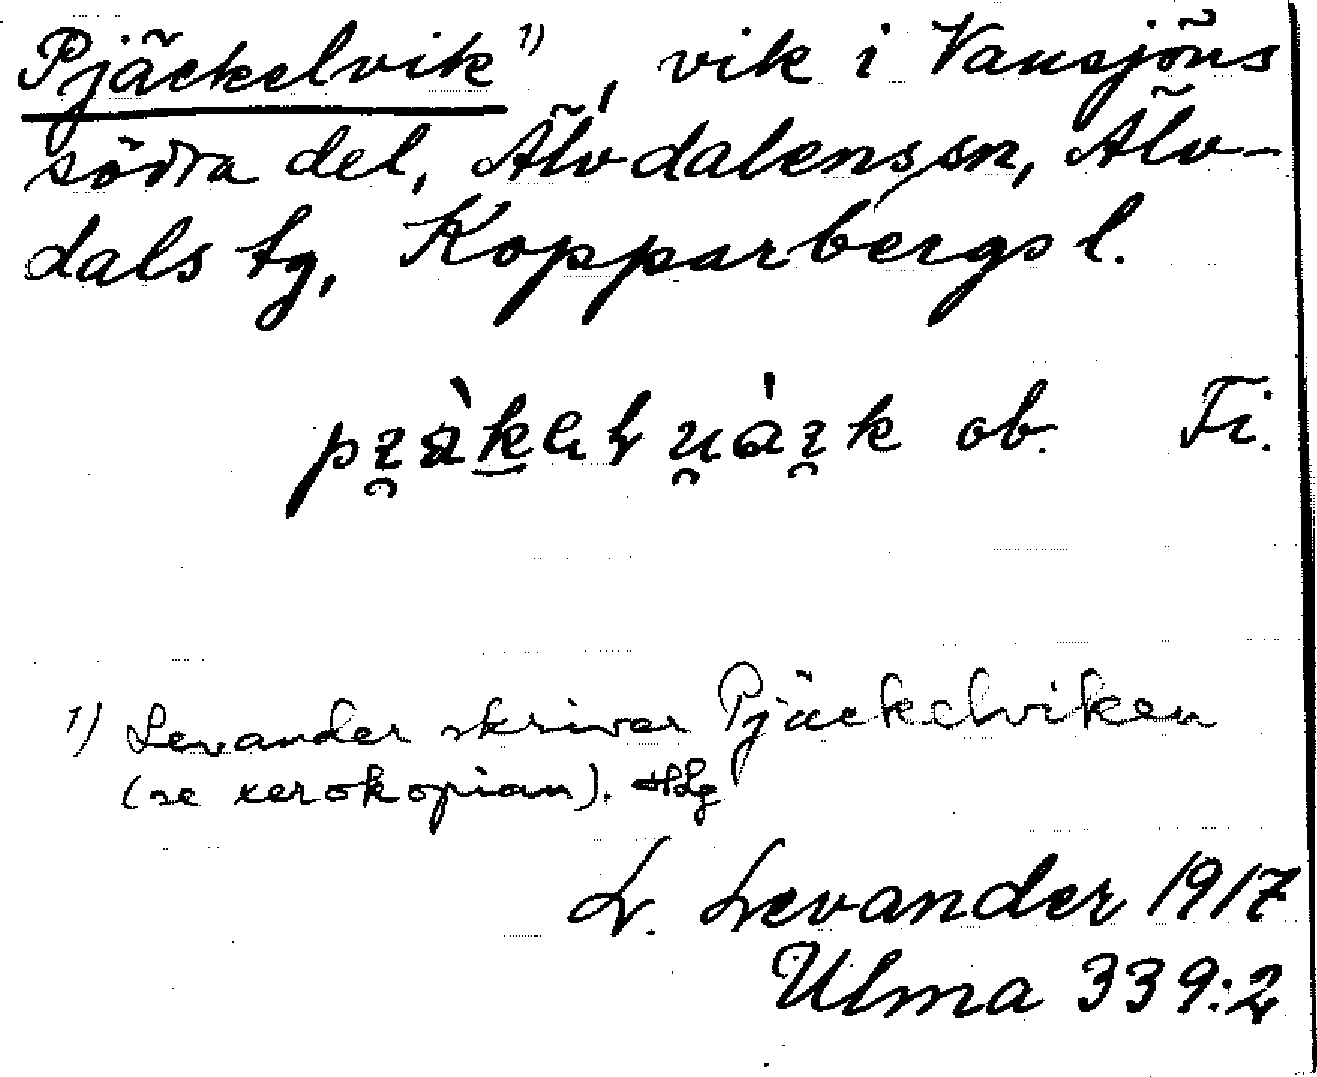 Pjäckelvik 1), vik i Vansjöns
södra del, Älvdalens sn, Älv-
dals tg, Kopparbergs l.
ob. Ti.
1) Levander skriver Pjäckelviken
(se xerokopian).
L. Levander 1917
Ulma 339:2